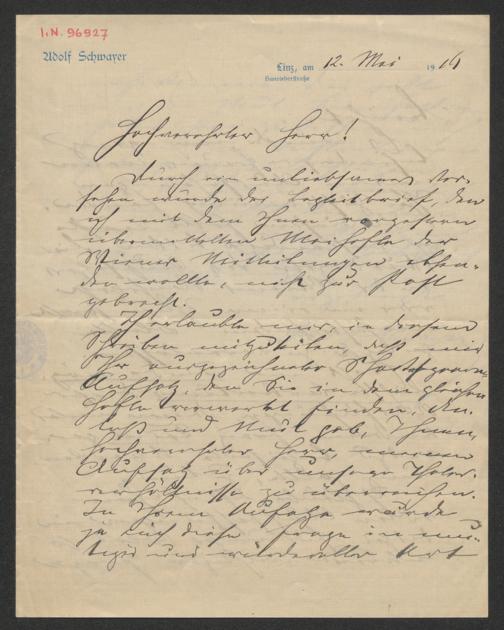 I.N. 96927
Adolf Schwayer
Linz, am 12. Mai 1916
Hochverehrter Herr!
Durch ein unliebsames Ver-
sehen wurde der Begleitbrief, den
ich mit dem Ihnen vorgestern
übermittelten Maihefte der
Wiener Mitteilungen absen-
den wollte, nicht zur Post
gebracht.
Ich erlaubte mir, in diesem
Schreiben mitzuteilen, daß mir
Ihr ausgezeichneter
Aufsatz, den Sie in dem gleichen
Hefte verwertet finden, An-
laß und Mut gab, Ihnen,
hochverehrter Herr, meinen
Aufsatz über unsere Theater-
verhältnisse zu überreichen.
In Ihrem Aufsatze wurde
ja auch diese Frage in mu-
tiger und würdevoller Art